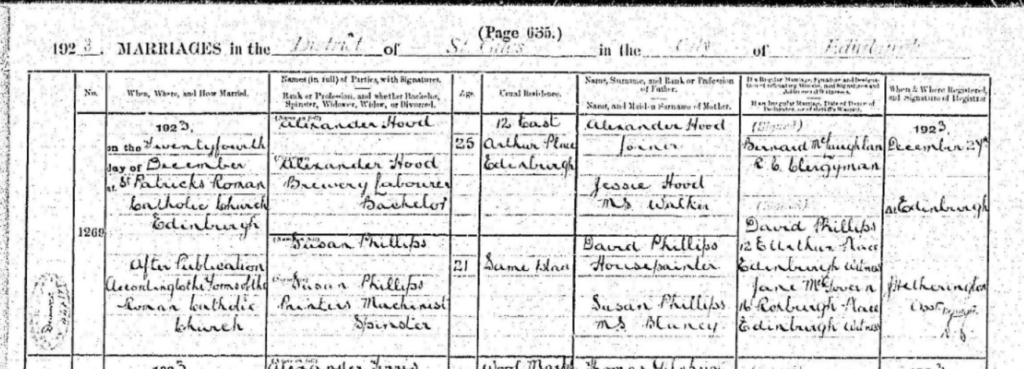 (Page 635.)
1923. MARRIAGES in the District of St Giles in the City of Edinburgh
No.
When, Where, and How Married.
Names (in full) of Parties, with Signatures.
Rank or Profession, and whether Bachelor, Spinster, Widower, Widow, or Divorced.
Age.
Usual Residence.
Name, Surname, and Rank or Profession of Father.
Name, and Maiden Surname of Mother.
When & Where Registered, and Signature of Registrar
1269
1923.
on the Twentyfourth
day of December
at St Patricks Roman
Catholic Church
Edinburgh
After Publication
According to the Forms of the
Roman Catholic
Church
Alexander Hood
(Signed) Alexander Hood
Brewery Labourer
Bachelor
25
12 East
Arthur Place
Edinburgh
Alexander Hood
Joiner
Jessie Hood
M.S. Walker
Susan Phillips
(Signed) Susan Phillips
Printers Machinist
Spinster
21
Same place
David Phillips
Housepainter
Susan Phillips
M.S. Blaney
(Signed)
Bernard McLaughlan
R. C. Clergyman
(Signed)
David Phillips
12 E Arthur Place
Edinburgh Witness
Jane McGovern
16 Roxburgh Place
Edinburgh Witness
1923.
December 27th
at Edinburgh
J Hetherington
Asst Registrar
1923
Wood
1923